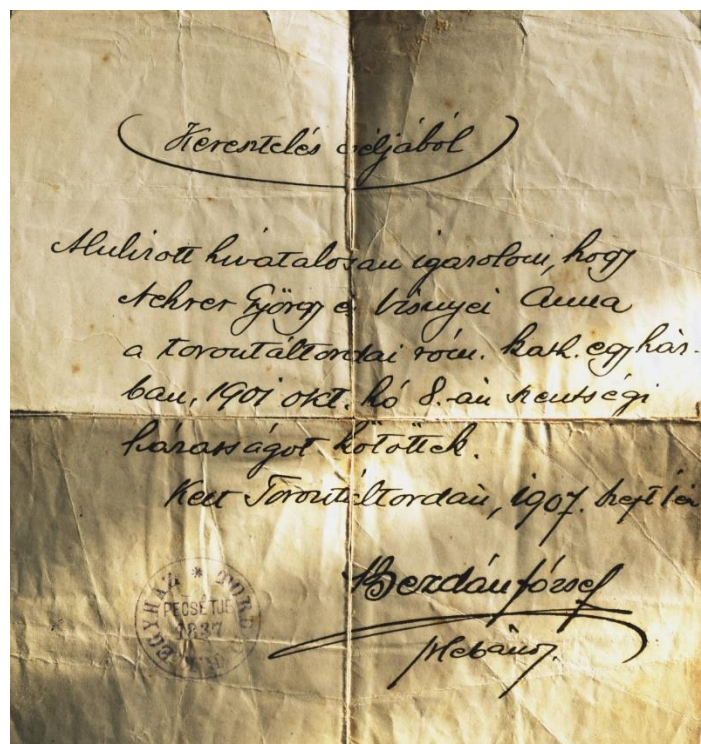 Keresztelés céljából
Alulirott hivatalosan igazolom, hogy
György és Visnyei Anna
a torontáltordai róm. kath. egyház-
ban, 1901 okt. hó 8.-án szentségi
házasságot kötöttek.
Kelt Torontáltordán, 1907. szept 1én
Bezdán József
plébános.
EGYHÁZ * TORD
PECSÉTJE
1837